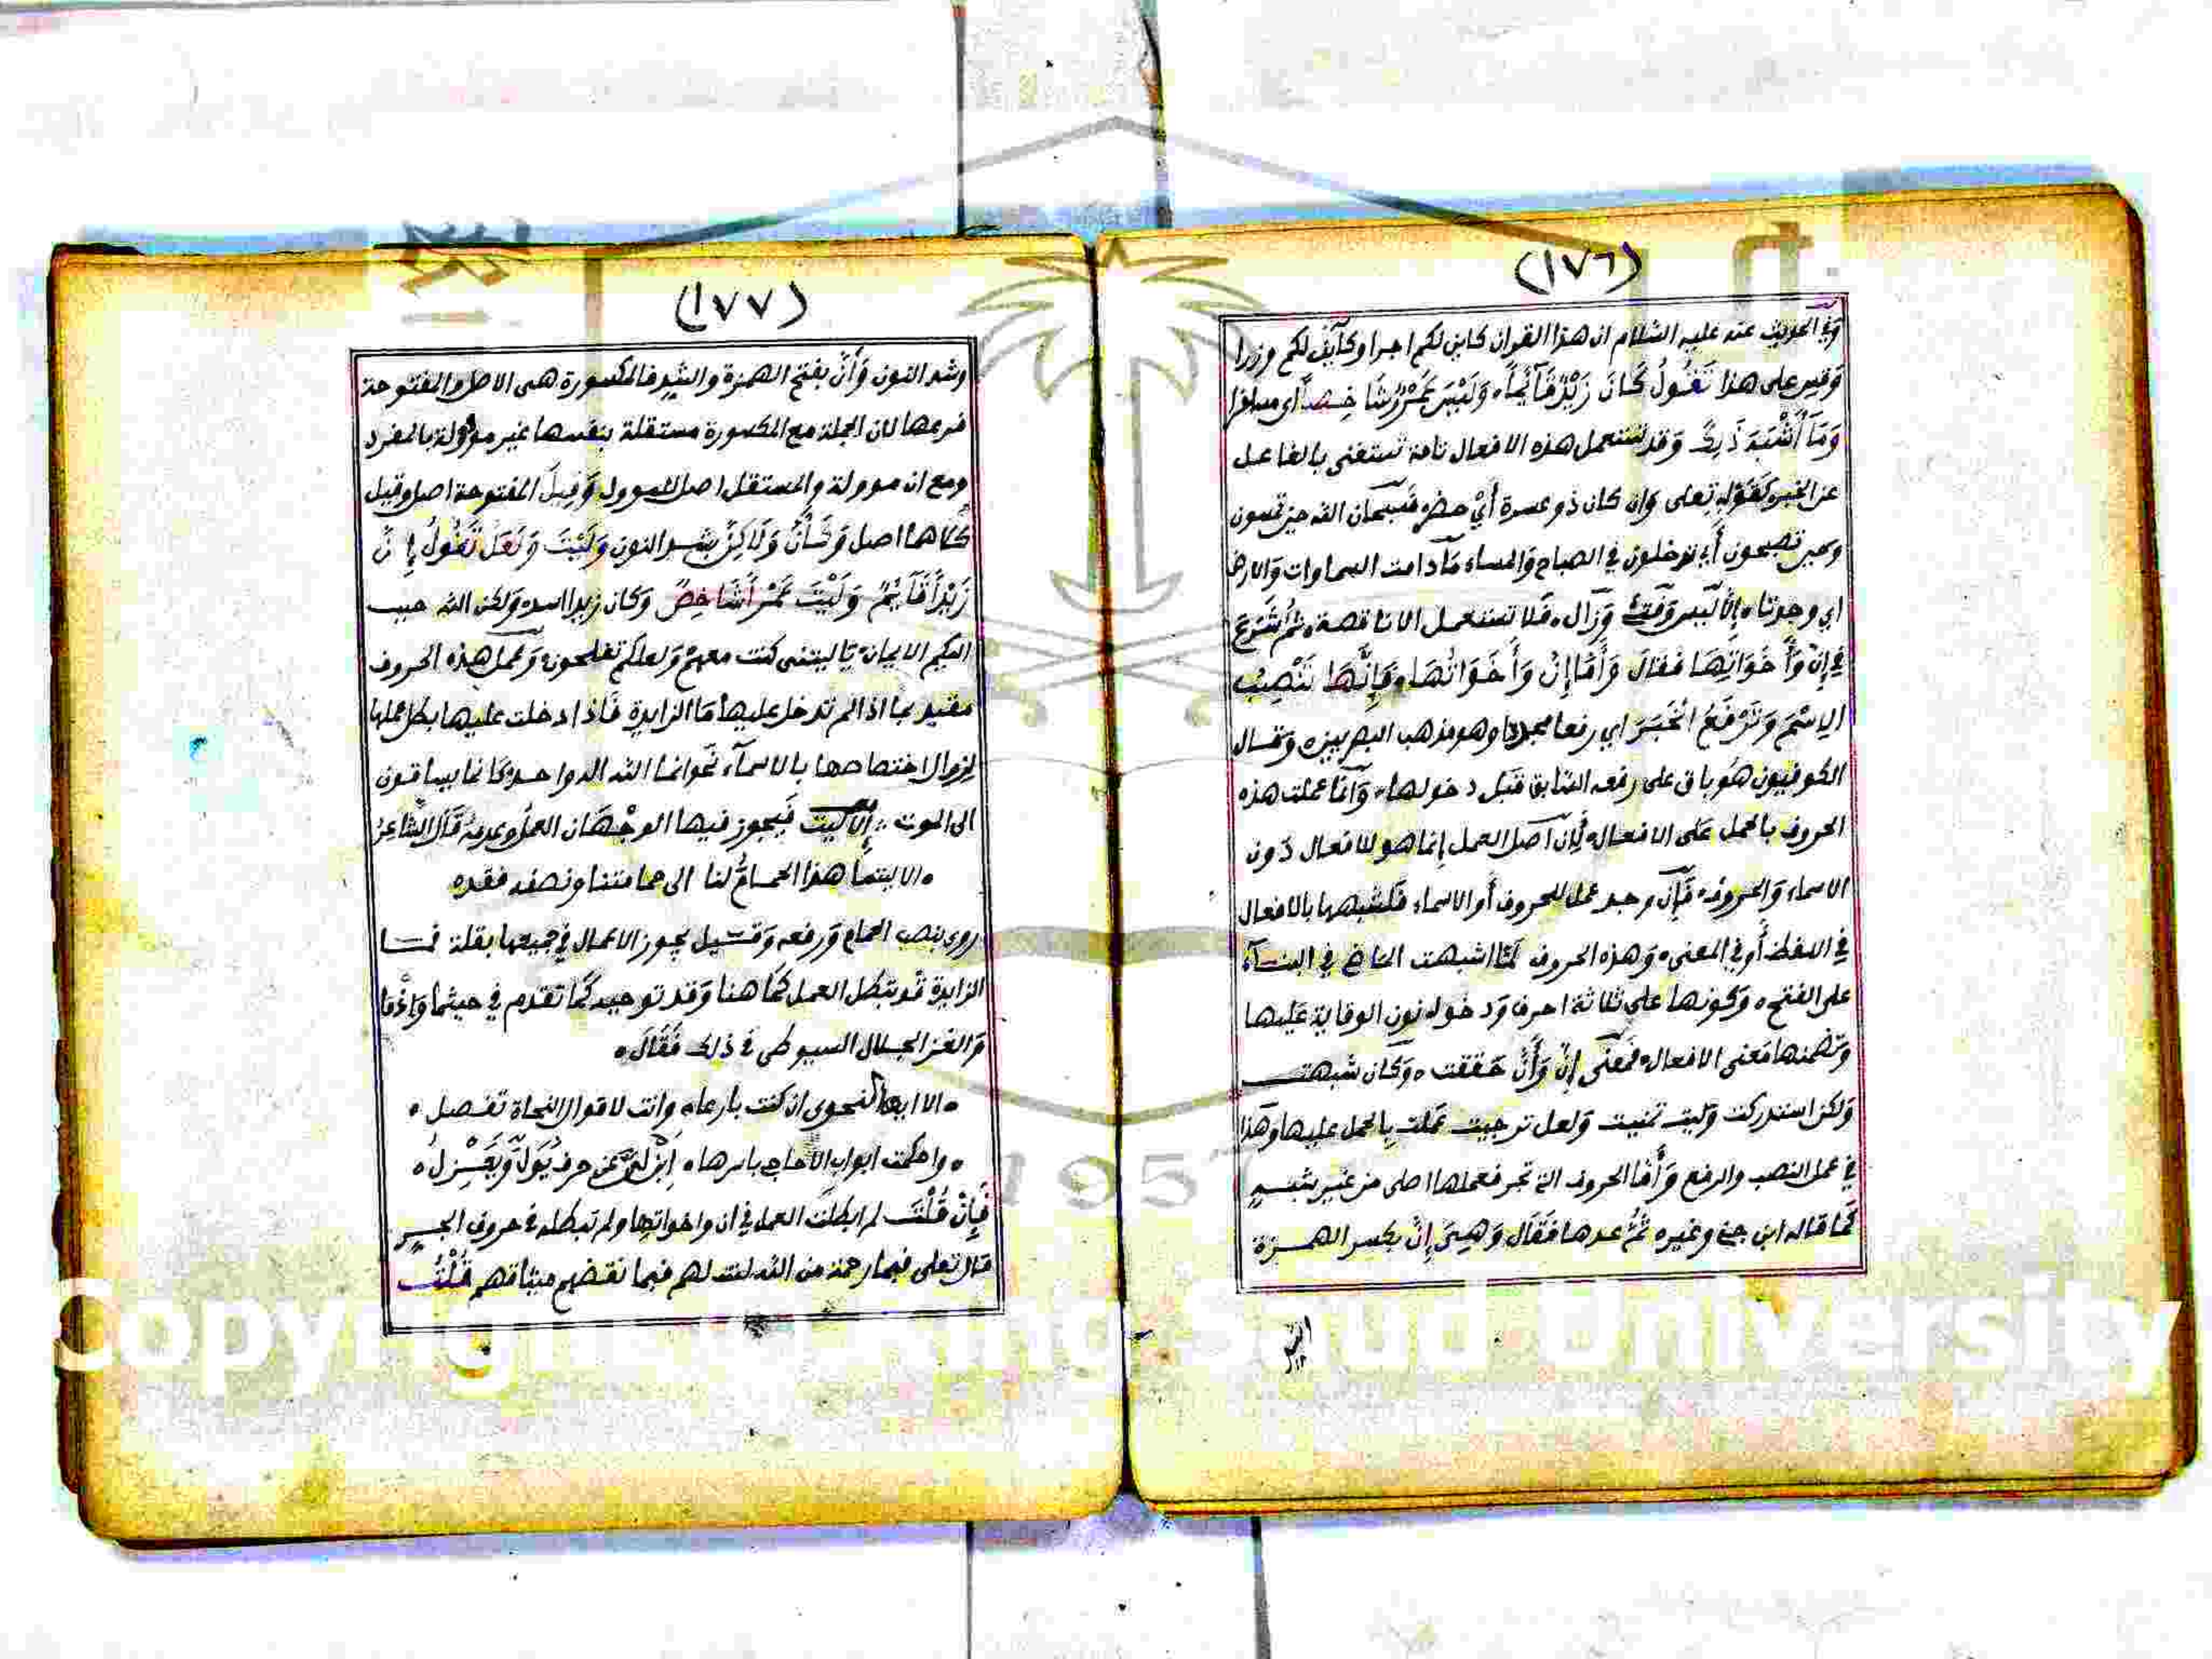 (١٧٦)
وفي الحديث عنه عليه السلام ان هذا القران كاين لكم اجرا وكآين لكم وزرا
وقس على هذا تَقُولُ كَانَ زَيْدٌ قَآئِمًا وَلَيْسَ عَمْرٌو شَاخِصًا أي مسافرا
وَمَا أَشْبَهَ ذَلِكَ وقد تستعمل هذه الافعال تامة تستغني بالفاعل
عن الخبر كقوله تعلى وان كان ذو عسرة أي حضر فسبحان الله حين تمسون
وحين تصبحون أي تدخلون في الصباح والمساء مآدامت السماوات والارض
اي وجودتا الا ليس وفتئ وزال فلا تستعمل الا ناقصة ثم شرع
في إنَّ وَأَخَوَاتِهَا فقال وَأَمَّا إِنَّ وَأَخَوَاتُهَا فَإِنَّهَا تَنْصِبُ
الِاسْمَ وَتَرْفَعُ الْخَبَرَ اي رفعا مجددا وهو مذهب البصريين وقال
الكوفيون هو باق على رفعه السابق قبل دخولها وانما عملت هذه
الحروف بالحمل على الافعال لأن اصل العمل إنما هو للافعال دون
الاسماء والحروف فإن وجد عمل للحروف أو الاسماء فلشبهها بالافعال
في اللفظ أو في المعنى وهذه الحروف لما اشبهت الماضي في البنآء
على الفتح وكونها على ثلاثة احرف ودخول نون الوقاية عليها
وتضمنها معنى الافعال فمعنى إنَّ وَأَنَّ حققت وكأن شبهت
ولكن استدركت وليت تمنيت ولعل ترجيت عملت بالحمل عليها وهذا
في عمل النصب والرفع وأما الحروف التي تجر فعملها اصلي من غير شبه
كما قاله ابن جني وغيره ثم عدها فقال وَهِيَ إِنَّ بكسر الهمزة
(١٧٧)
وشد النون وَأَنَّ بفتح الهمزة والشد فالمكسورة هي الاصل والمفتوحة
فرعها لان الجملة مع المكسورة مستقلة بنفسها غير مؤولة بالمفرد
ومع ان موولة والمستقل اصل للموول وقيل المفتوحة اصل وقيل
كلاهما اصل وَكَأَنَّ وَلَاكِنَّ بشد النون وَلَيْتَ وَلَعَلَّ تَقُولُ إِنَّ
زَيْدًا قَآئِمٌ وَلَيْتَ عَمْرًا شَاخِصٌ وكان زيدا اسد ولكن الله حبب
اليكم الايمان يا ليتني كنت معهم ولعلكم تفلحون وعمل هذه الحروف
مقيد بما اذا لم تدخل عليها ما الزايدة فاذا دخلت عليها بطل عملها
لزوال اختصاصها بالاسمآء نحو انما الله اله واحد كانما يساقون
الى الموت إلا ليت فيجوز فيها الوجهان العمل وعدمه قال الشاعر
الا ليتما هذا الحمام لنا الى حمامتنا ونصفه فقد
روي بنصب الحمام ورفعه وقيل يجوز الاعمال في جميعها بقلة فما
الزايدة قد تبطل العمل كما هنا وقد توجبه كما تقدم في حيثما وإذما
والغز الجلال السيوطي في ذلك فقال
الا ايها النحوي ان كنت بارعا وانت لاقوال النحاة تفصل
واحكمت ابواب الأحاجي باسرها ابن لي عن حرف يُوَلِّي وَيَعْزِلُ
فَإِنْ قُلْتَ لم ابطلت العمل في ان واخواتها ولم تبطله في حروف الجر
قال تعلى فبما رحمة من الله لنت لهم فبما نقضهم ميثاقهم قُلْتُ
Copyright © King Saud University
1957